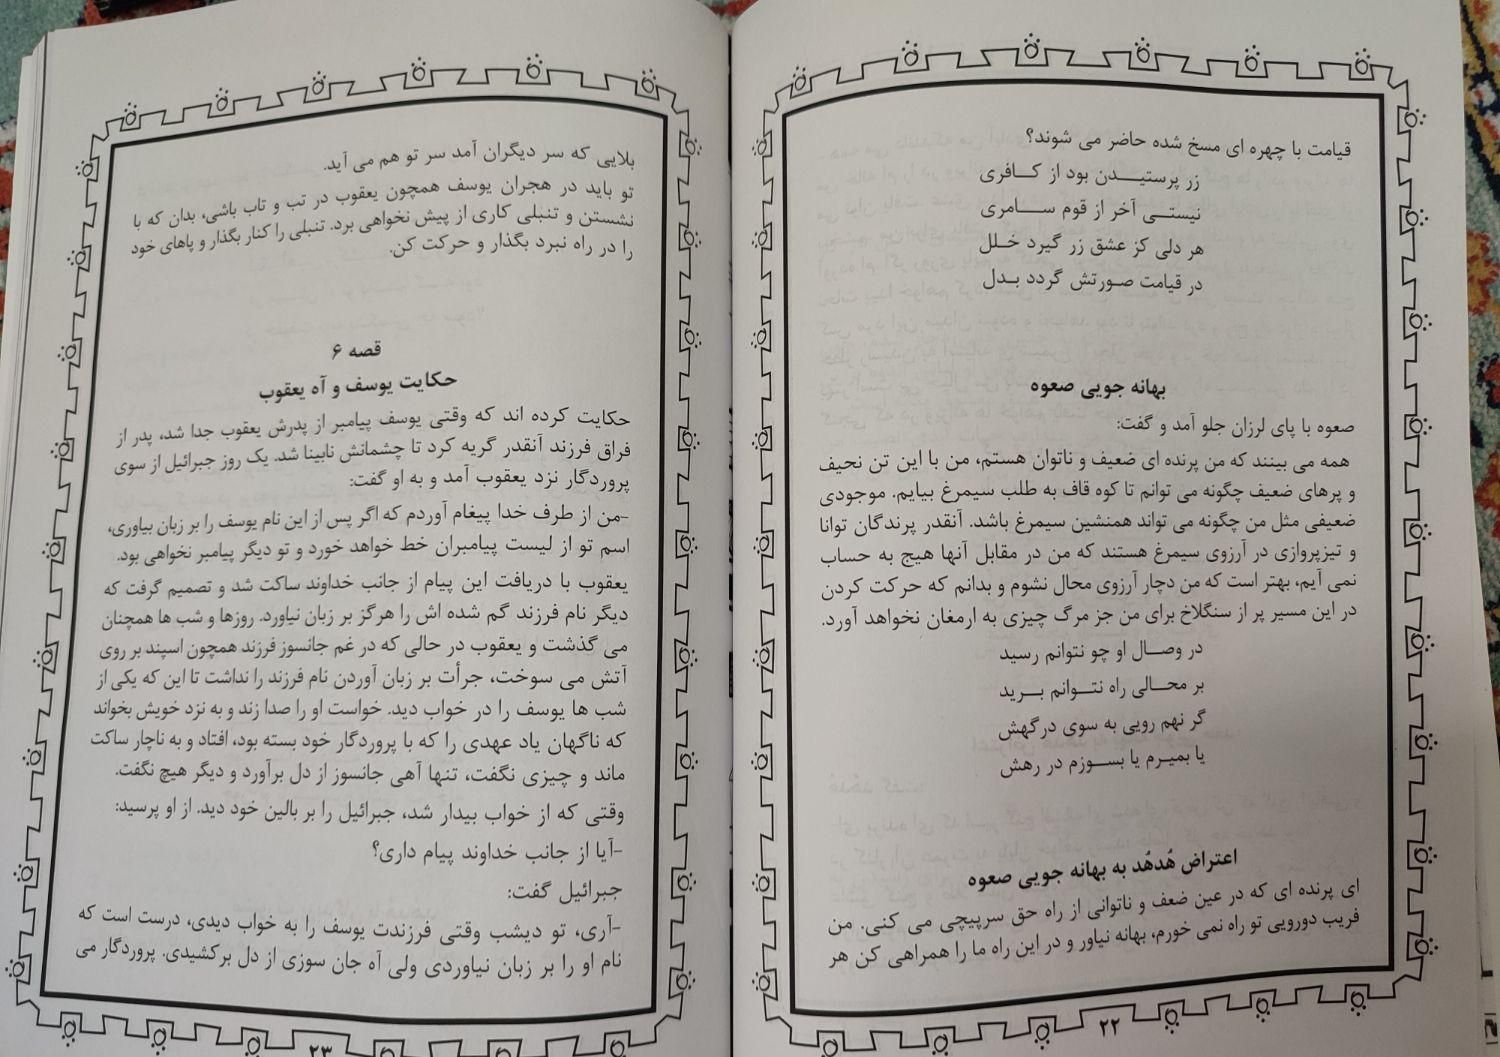 قیامت با چهره ای مسخ شده حاضر می شوند؟
زر پرستیــدن بود از کـافری
نیستـی آخر از قوم سـامری
هر دلی کز عشق زر گیرد خـلل
در قیامت صورتش گردد بـدل
بهانه جویی صعوه
صعوه با پای لرزان جلو آمد و گفت:
همه می بینند که من پرنده ای ضعیف و ناتوان هستم، من با این تن نحیف
و پرهای ضعیف چگونه می توانم تا کوه قاف به طلب سیمرغ بیایم. موجودی
ضعیفی مثل من چگونه می تواند همنشین سیمرغ باشد. آنقدر پرندگان توانا
و تیزپروازی در آرزوی سیمرغ هستند که من در مقابل آنها هیچ به حساب
نمی آیم، بهتر است که من دچار آرزوی محال نشوم و بدانم که حرکت کردن
در این مسیر پر از سنگلاخ برای من جز مرگ چیزی به ارمغان نخواهد آورد.
در وصـال او چو نتوانم رسید
بر محـالی راه نتـوانم بـرید
گر نهم رویی به سوی درگهش
یا بمیـرم یا بسـوزم در رهش
اعتراض هُدهُد به بهانه جویی صعوه
ای پرنده ای که در عین ضعف و ناتوانی از راه حق سرپیچی می کنی. من
فریب دورویی تو راه نمی خورم، بهانه نیاور و در این راه ما را همراهی کن هر
۲۲
بلایی که سر دیگران آمد سر تو هم می آید.
تو باید در هجران یوسف همچون یعقوب در تب و تاب باشی، بدان که با
نشستن و تنبلی کاری از پیش نخواهی برد. تنبلی را کنار بگذار و پاهای خود
را در راه نبرد بگذار و حرکت کن.
قصه ۶
حکایت یوسف و آه یعقوب
حکایت کرده اند که وقتی یوسف پیامبر از پدرش یعقوب جدا شد، پدر از
فراق فرزند آنقدر گریه کرد تا چشمانش نابینا شد. یک روز جبرائیل از سوی
پروردگار نزد یعقوب آمد و به او گفت:
-من از طرف خدا پیغام آوردم که اگر پس از این نام یوسف را بر زبان بیاوری،
اسم تو از لیست پیامبران خط خواهد خورد و تو دیگر پیامبر نخواهی بود.
یعقوب با دریافت این پیام از جانب خداوند ساکت شد و تصمیم گرفت که
دیگر نام فرزند گم شده اش را هرگز بر زبان نیاورد. روزها و شب ها همچنان
می گذشت و یعقوب در حالی که در غم جانسوز فرزند همچون اسپند بر روی
آتش می سوخت، جرأت بر زبان آوردن نام فرزند را نداشت تا این که یکی از
شب ها یوسف را در خواب دید. خواست او را صدا زند و به نزد خویش بخواند
که ناگهان یاد عهدی را که با پروردگار خود بسته بود، افتاد و به ناچار ساکت
ماند و چیزی نگفت، تنها آهی جانسوز از دل برآورد و دیگر هیچ نگفت.
وقتی که از خواب بیدار شد، جبرائیل را بر بالین خود دید. از او پرسید:
-آیا از جانب خداوند پیام داری؟
جبرائیل گفت:
-آری، تو دیشب وقتی فرزندت یوسف را به خواب دیدی، درست است که
نام او را بر زبان نیاوردی ولی آه جان سوزی از دل برکشیدی. پروردگار می
۲۳